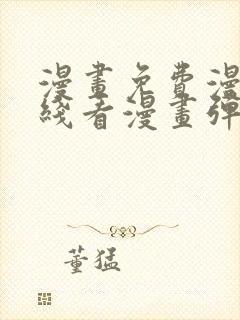 漫畫免費漫
綫看漫畫彈
董猛